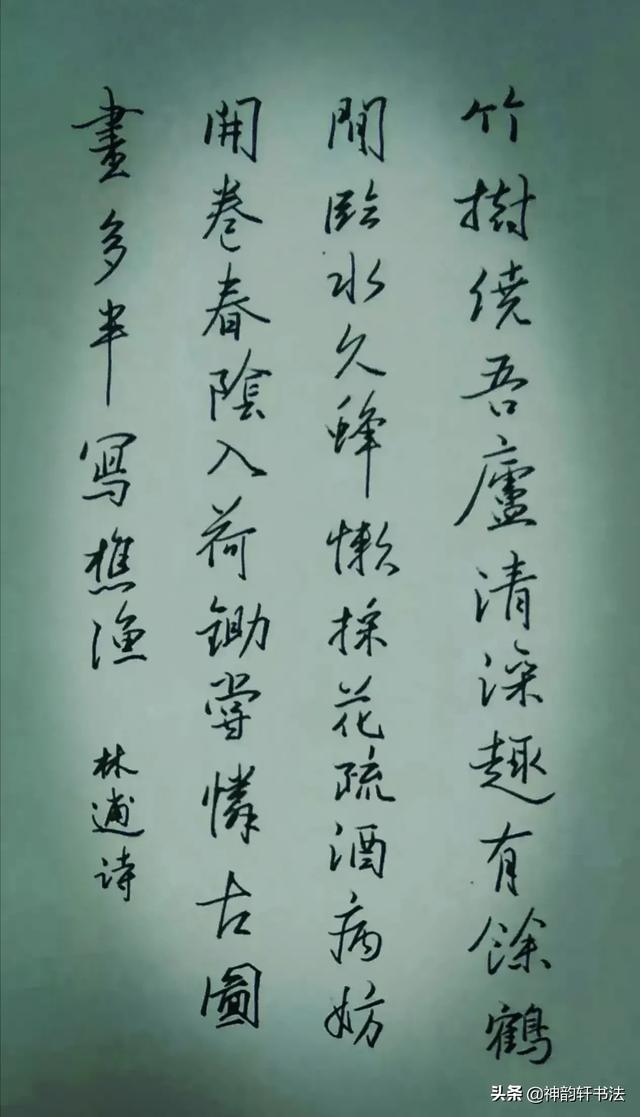 竹樹繞吾廬清深趣有餘鶴
閒臨水久蜂懶採花疏酒病妨
開卷春陰入荷鋤嘗憐古圖
畫多半寫樵漁 林逋诗
头条 @神韵轩书法